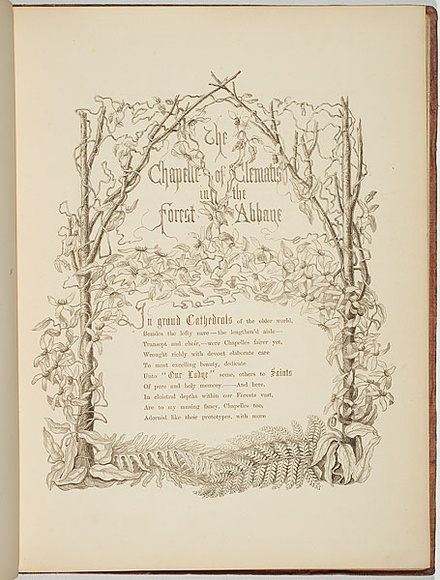 The
Chapelle of Clematis
in the
Forest Abbaye
In grand Cathedrals of the older world,
Besides the lofty nave—the lengthen'd aisle—
Transept and choir,—were Chapelles fairer yet,
Wrought richly with devout elaborate care
To most excelling beauty, dedicate
Unto "Our Ladye" some, others to Saints
Of pure and holy memory.——And here,
In cloistral depths within our Forests vast,
Are to my musing fancy, Chapelles too,
Adorned like their prototypes, with more